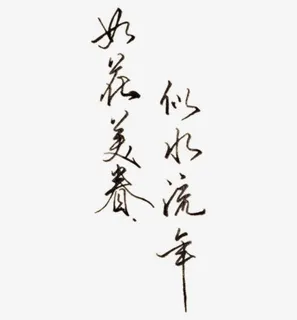 如花美眷、
似水流年